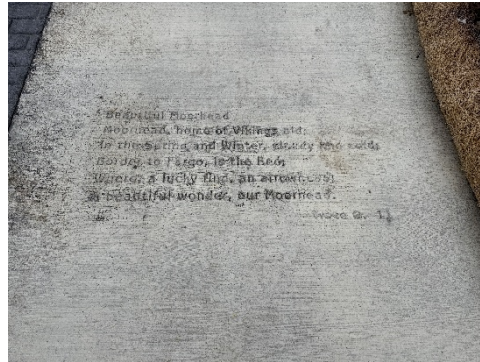 Beautiful Moorhead
Moorhead, home of Vikings old;
In the Spring and Winter, windy and cold;
Border to Fargo, is the Red;
a lucky find, an
A beautiful wonder, our Moorhead.